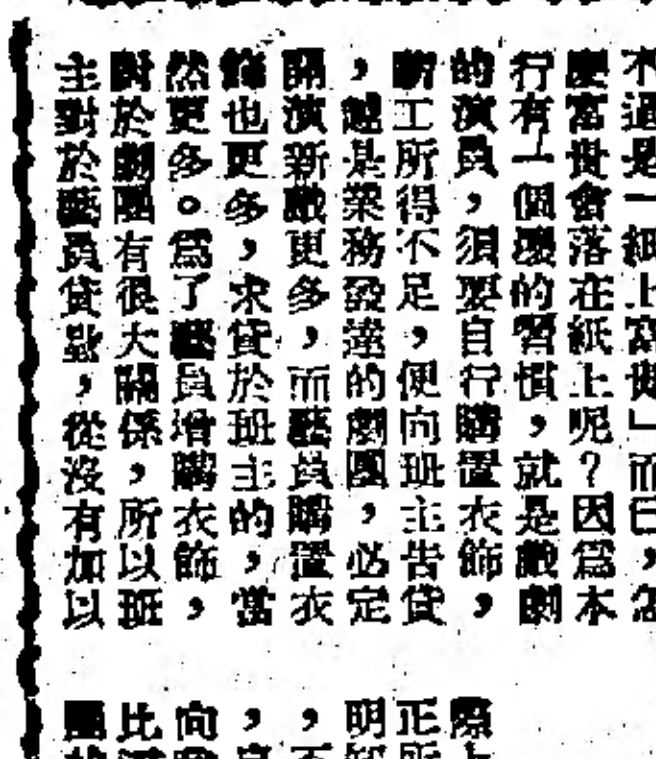 不過是一紙上富貴」而已，怎
慶富貴會落在紙上呢？因爲本
行有一個壞的習慣，就是戲劇
的演員，須要自行購置衣飾，
薪工所得不足，便向班主告貸
，越是業務發達的劇團，必定
開演新戲更多，而藝員購置衣
飾也更多，求貸於班主的，當
然更多。爲了藝員增購衣飾，
對於劇團有很大關係，所以班
主對於藝員貸款，從沒有加以
際
正所
明
，不
，
向
比
團